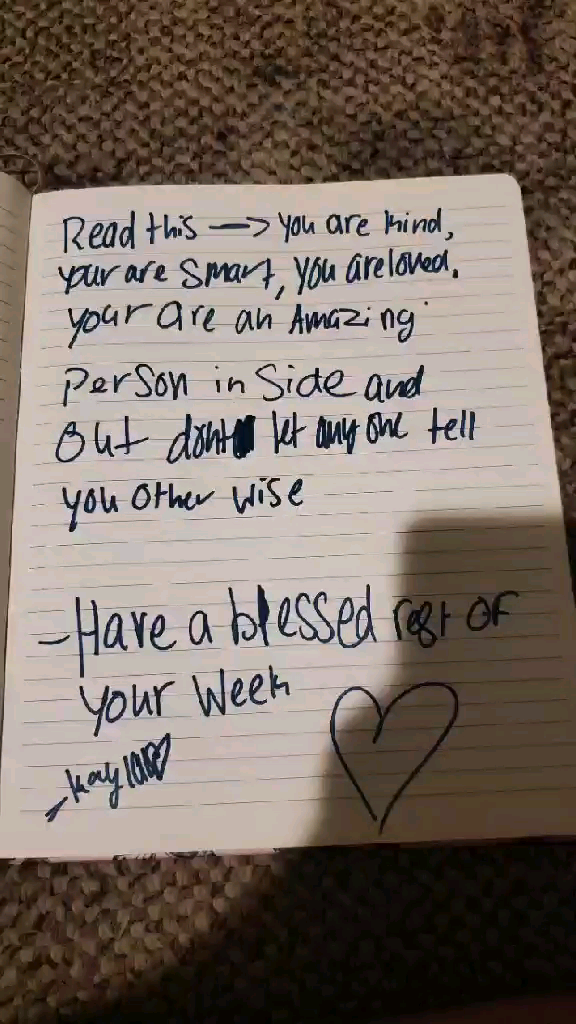 Read this → you are kind,
your are smart, you are loved.
your are an Amazing
person in side and
out dont let any one tell
you other wise
- Have a blessed rest of
your week
- kayla